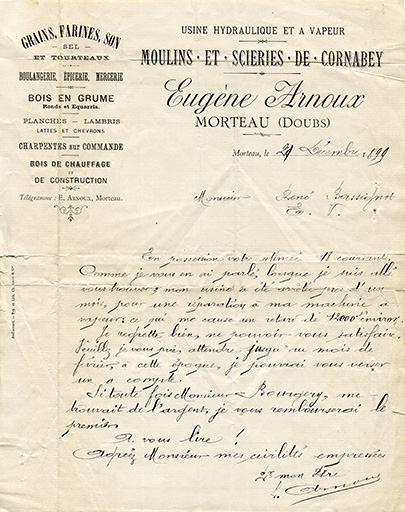 GRAINS, FARINES, SON
SEL
ET TOURTEAUX
BOULANGERIE, ÉPICERIE, MERCERIE
BOIS EN GRUME
Ronds et Equarris.
PLANCHES - LAMBRIS
LATTES ET CHEVRONS
CHARPENTES sur COMMANDE
BOIS DE CHAUFFAGE
ET
DE CONSTRUCTION
Télégramme : E. ARNOUX, Morteau.
USINE HYDRAULIQUE ET A VAPEUR
MOULINS · ET · SCIERIES · DE · CORNABEY
Eugène Arnoux
MORTEAU (DOUBS)
Morteau, le 29 Décembre 1899
Monsieur René Bassignot
E. V.
En possession votre estimée 11 courant.
Comme je vous en ai parlé, lorsque je suis allé
vous trouver ; mon usine a été arrêtée plus d'un
mois, pour une réparation à ma machine à
vapeur, ce qui me cause un retard de 12000 environ.
Je regrette bien, ne pouvoir vous satisfaire.
Veuillez je vous prie, attendre, jusqu'au mois de
février, à cette époque, je pourrai vous verser
un a compte.
Si toute fois Monsieur Bourgery, me
trouvait de l'argent, je vous rembourserai le
premier.
A vous lire !
Agréez Monsieur mes civilités empressées
Pr mon Père
Arnoux